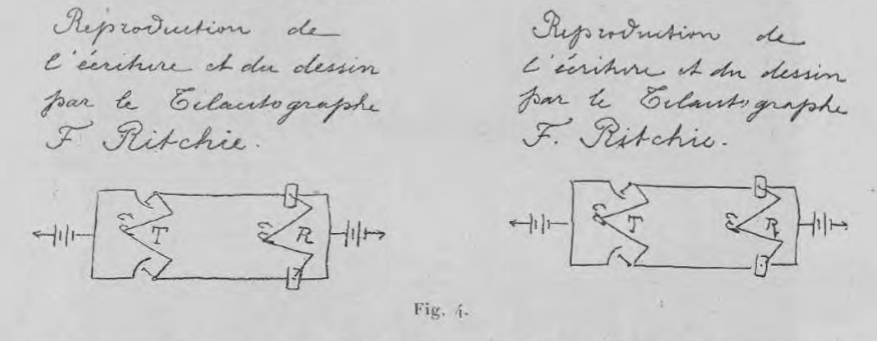 Reproduction de
l'écriture et du dessin
par le Télautographe
F. Ritchie.
T
R
Reproduction de
l'écriture et du dessin
par le Télautographe
F. Ritchie.
T
R
Fig. 4.